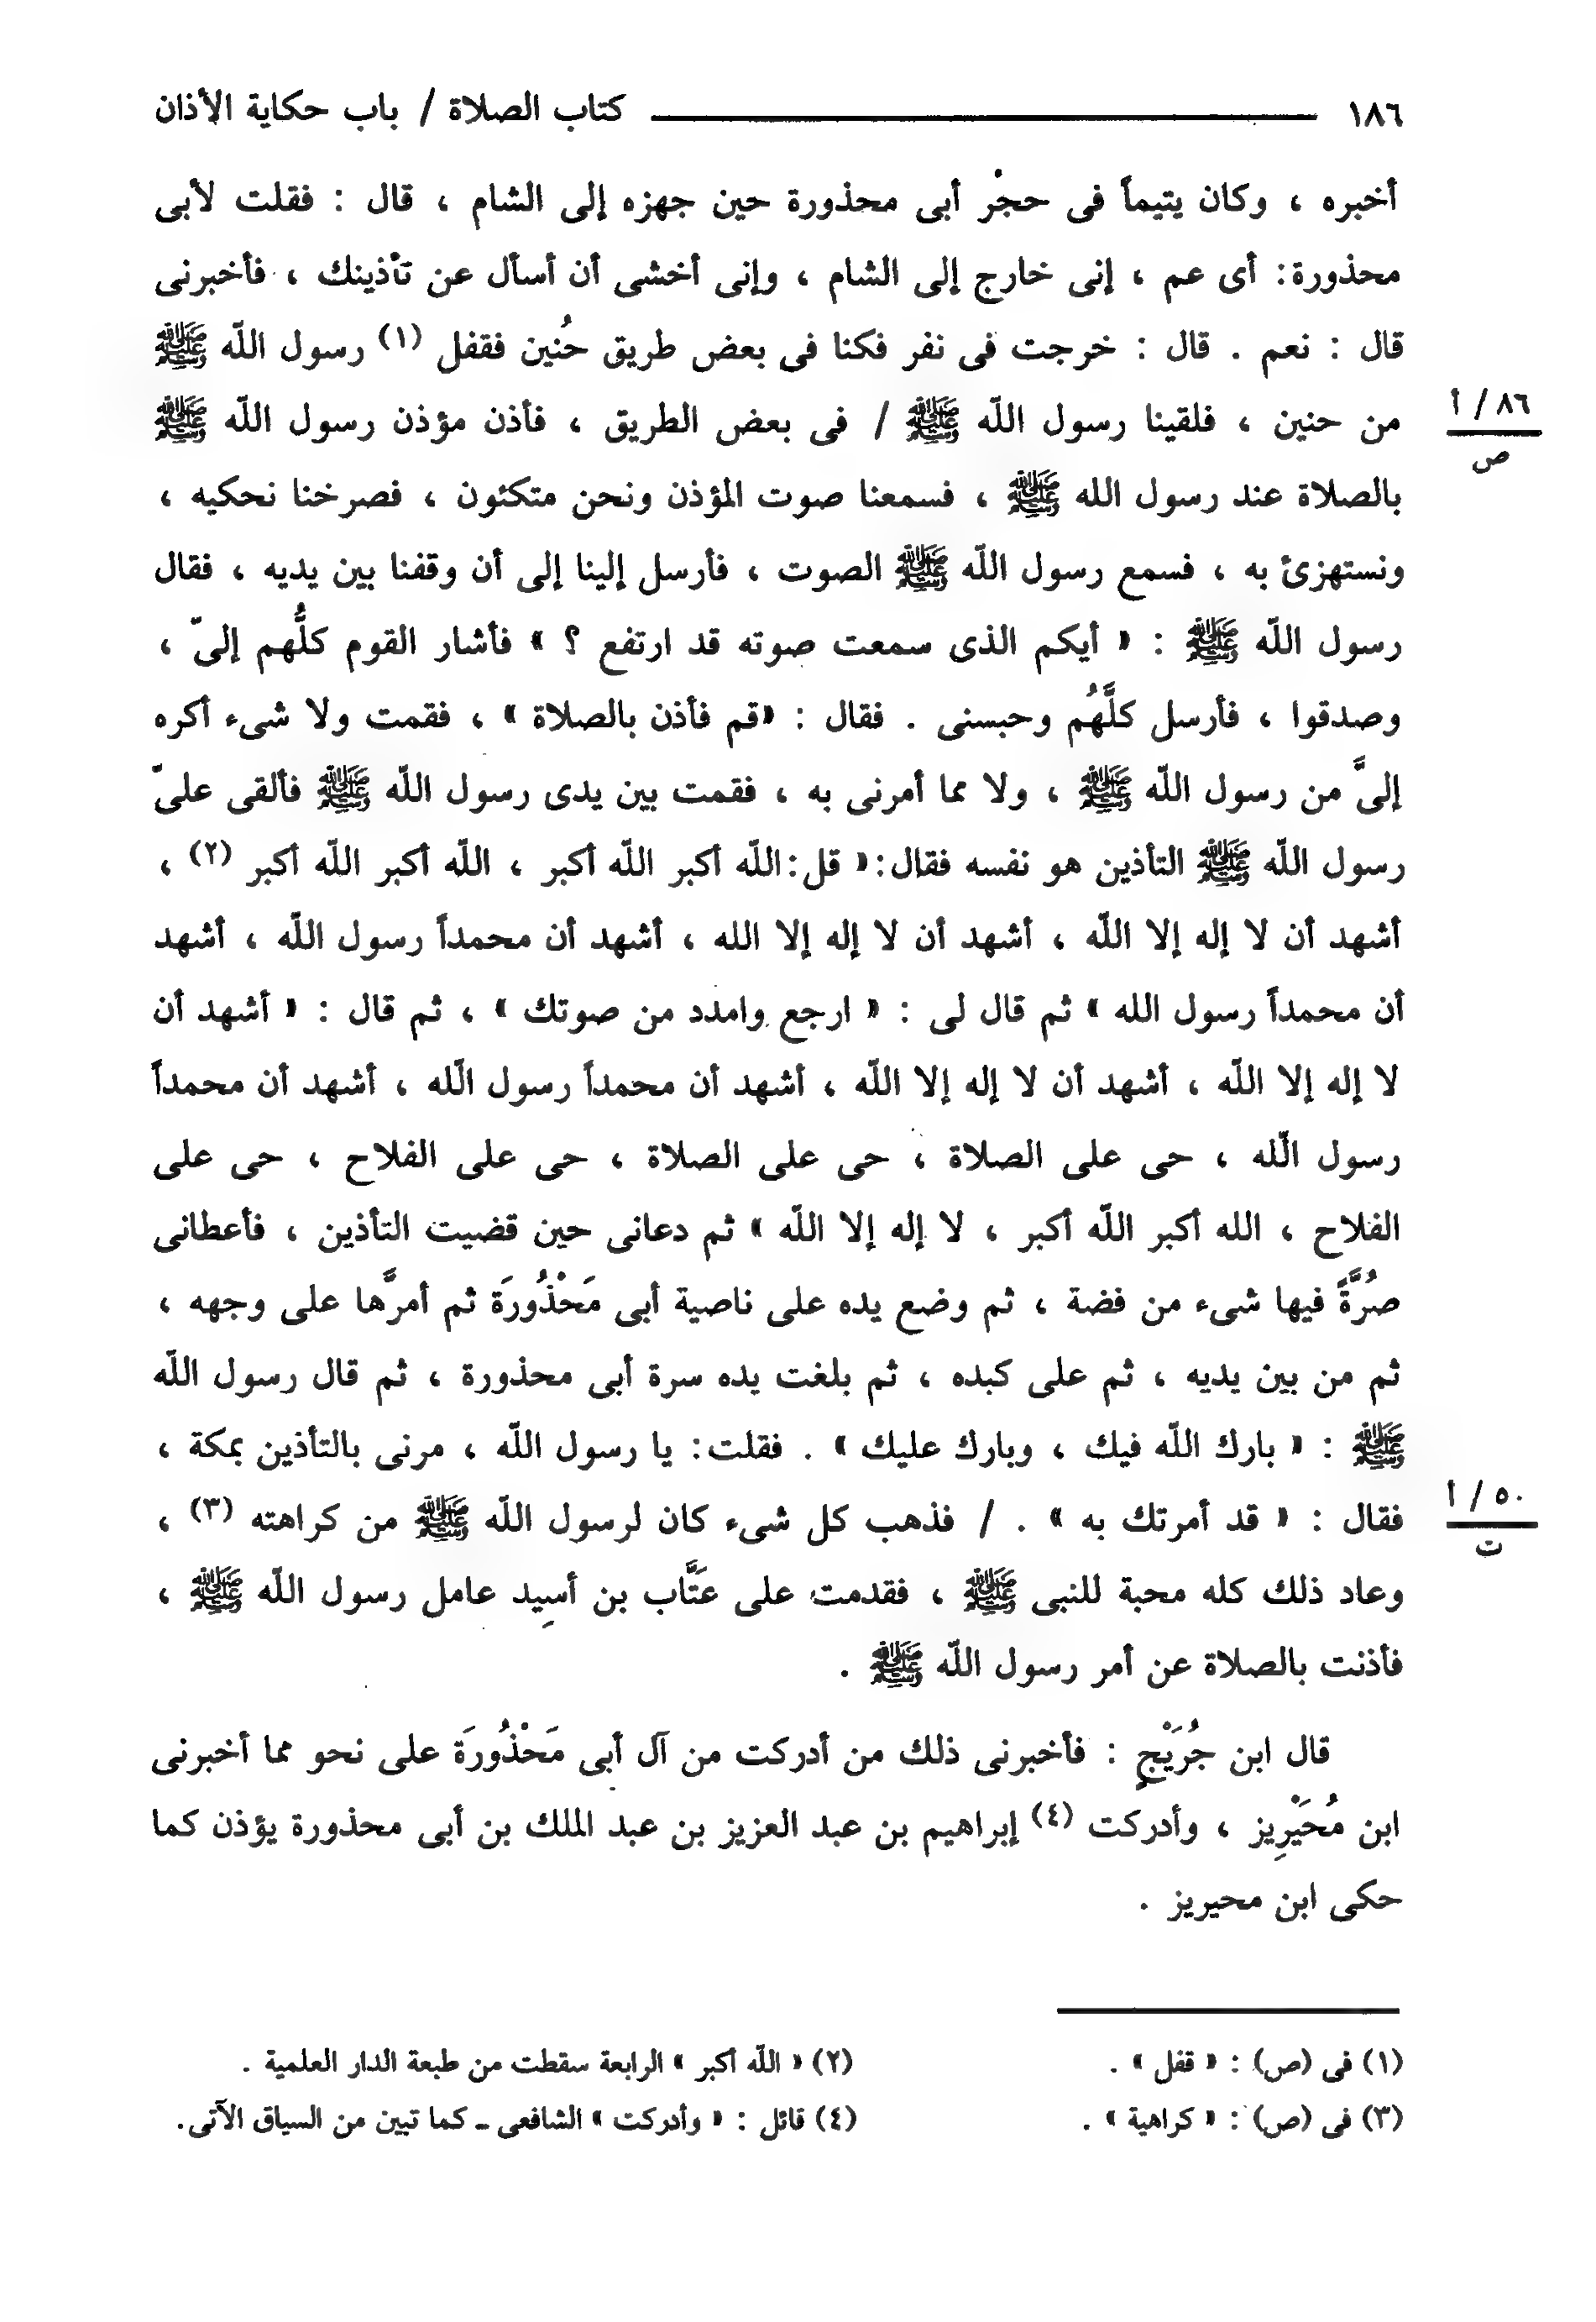 ١٨٦ كتاب الصلاة / باب حكاية الأذان
أخبره ، وكان يتيماً فى حجْر أبى محذورة حين جهزه إلى الشام ، قال : فقلت لأبى
محذورة: أى عم ، إنى خارج إلى الشام ، وإنى أخشى أن أسأل عن تأذينك ، فأخبرنى
قال : نعم . قال : خرجت فى نفر فكنا فى بعض طريق حُنين فقفل (١) رسول اللّه ﷺ
من حنين ، فلقينا رسول اللّه ﷺ / فى بعض الطريق ، فأذن مؤذن رسول اللّه ﷺ
٨٦ / أ
ص
بالصلاة عند رسول الله ﷺ ، فسمعنا صوت المؤذن ونحن متكئون ، فصرخنا نحكيه ،
ونستهزئ به ، فسمع رسول اللّه ﷺ الصوت ، فأرسل إلينا إلى أن وقفنا بين يديه ، فقال
رسول اللّه ﷺ : « أيكم الذى سمعت صوته قد ارتفع ؟ » فأشار القوم كلُّهم إلىّ ،
وصدقوا ، فأرسل كلَّهُم وحبسنى . فقال : «قم فأذن بالصلاة » ، فقمت ولا شىء أكره
إلىَّ من رسول اللّه ﷺ ، ولا مما أمرنى به ، فقمت بين يدى رسول اللّه ﷺ فألقى علىّ
رسول اللّه ﷺ التأذين هو نفسه فقال:« قل:اللّه أكبر اللّه أكبر ، اللّه أكبر اللّه أكبر (٢) ،
أشهد أن لا إله إلا اللّه ، أشهد أن لا إله إلا الله ، أشهد أن محمداً رسول اللّه ، أشهد
أن محمداً رسول الله » ثم قال لى : « ارجع وامدد من صوتك » ، ثم قال : « أشهد أن
لا إله إلا اللّه ، أشهد أن لا إله إلا اللّه ، أشهد أن محمداً رسول الّله ، أشهد أن محمداً
رسول الّله ، حى على الصلاة ، حى على الصلاة ، حى على الفلاح ، حى على
الفلاح ، الله أكبر اللّه أكبر ، لا إله إلا اللّه » ثم دعانى حين قضيت التأذين ، فأعطانى
صُرَّةً فيها شىء من فضة ، ثم وضع يده على ناصية أبى مَحْذُورَة ثم أمرَّها على وجهه ،
ثم من بين يديه ، ثم على كبده ، ثم بلغت يده سرة أبى محذورة ، ثم قال رسول اللّه
ﷺ : « بارك اللّه فيك ، وبارك عليك » . فقلت: يا رسول اللّه ، مرنى بالتأذين بمكة ،
فقال : « قد أمرتك به » . / فذهب كل شىء كان لرسول اللّه ﷺ من كراهته (٣) ،
٥٠ / أ
ت
وعاد ذلك كله محبة للنبى ﷺ ، فقدمت على عَتَّاب بن أسِيد عامل رسول اللّه ﷺ ،
فأذنت بالصلاة عن أمر رسول اللّه ﷺ .
قال ابن جُرَيْجٍ : فأخبرنى ذلك من أدركت من آل أبى مَحْذُورَة على نحو مما أخبرنى
ابن مُحَيْرِيز ، وأدركت (٤) إبراهيم بن عبد العزيز بن عبد الملك بن أبى محذورة يؤذن كما
حكى ابن محيريز .
(١) فى (ص) : « قفل » . (٢) « اللّه أكبر » الرابعة سقطت من طبعة الدار العلمية .
(٣) فى (ص) : « كراهية » . (٤) قائل : « وأدركت » الشافعى ـ كما تبين من السياق الآتى.